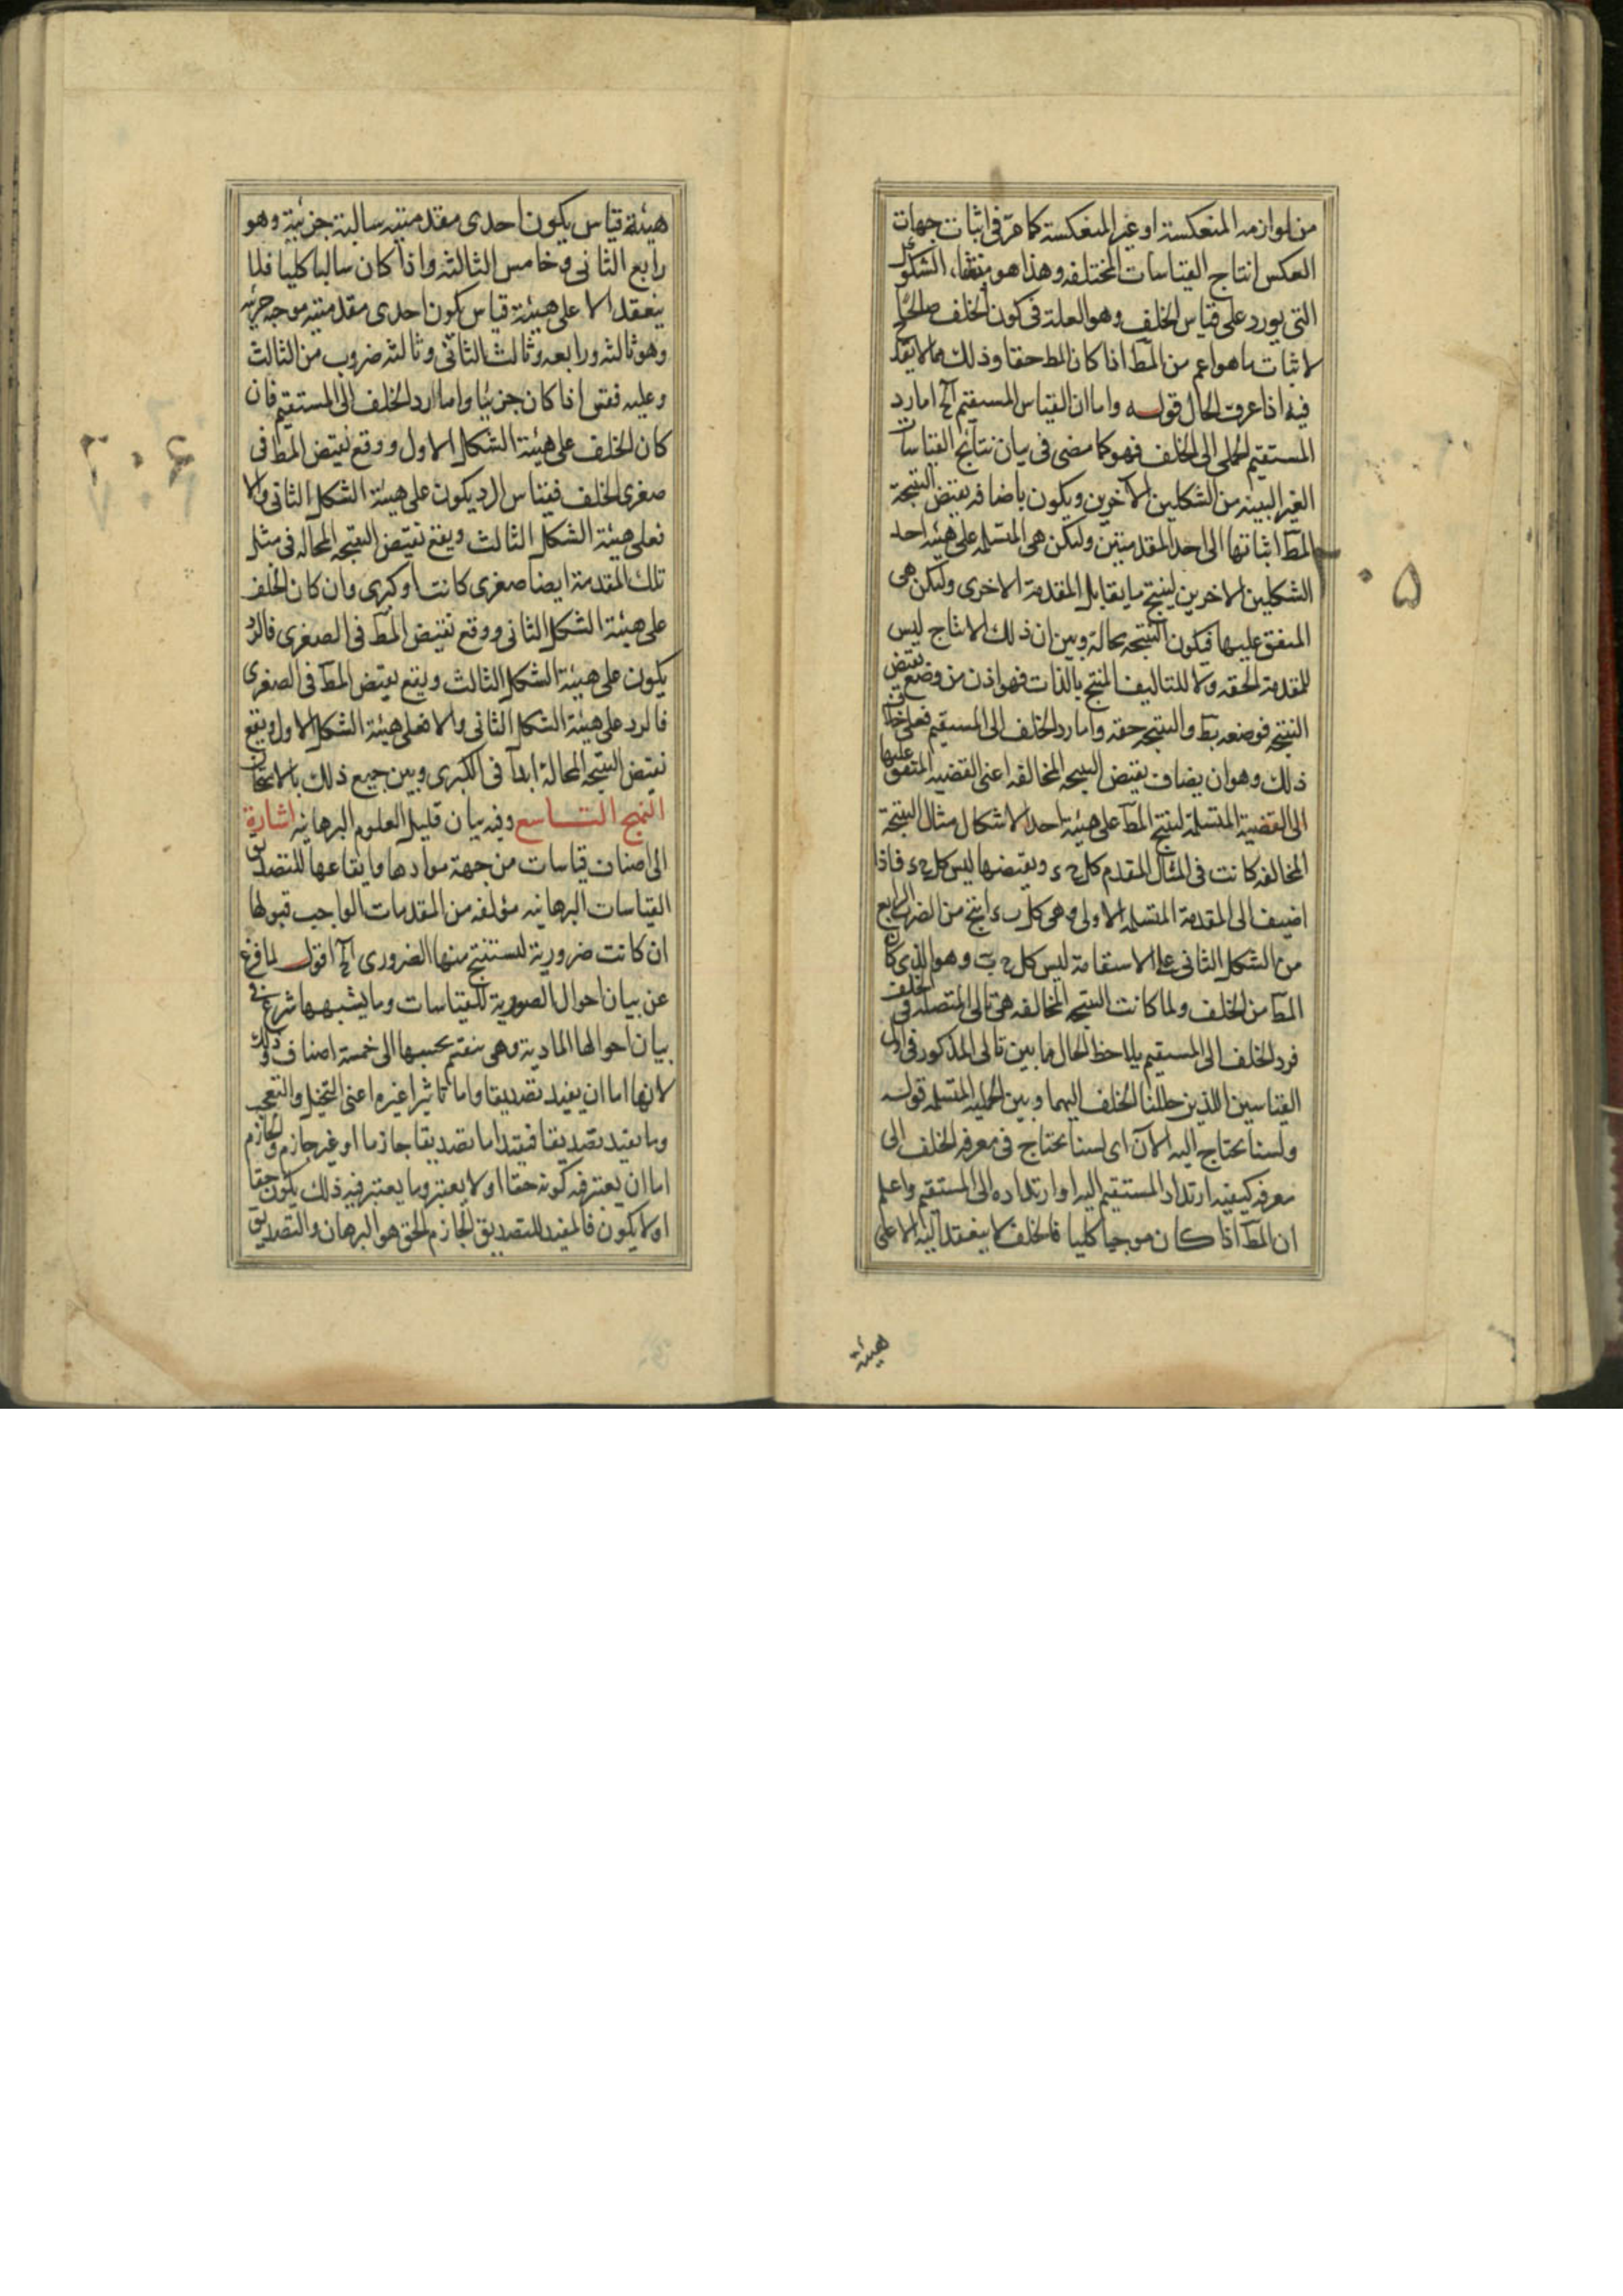 من لوازمه المنعكسة او غير المنعكسة كما مرّ فى اثبات جهات
العكس انتاج القياسات المختلفه وهذا هو منشاء الشكوك
التى يورد على قياس الخلف وهو العلة فى كون الخلف صالحا
لاثبات ما هو اعم من المط اذا كان المط حقا وذلك مما لا يقدح
فيه اذا عرفت الحال قوله واما ان القياس المستقيم الخ اما رد
المستقيم الحملى الى الخلف فهو كما مضى فى بيان نتائج القياسات
الغير البينه من الشكلين الاخرين ويكون باضافه نقيض النتيجة
المط اثباتها الى احد المقدمتين ولتكن هى المتسلمه على هيئه احد
الشكلين الاخرين لينتج ما يقابل المقدمة الاخرى ولتكن هى
المتفق عليها فيكون النتيجه محالة وبين ان ذلك الانتاج ليس
للمقدمة الحقه ولا للتاليف المنتج بالذات فهو اذن من وضع نقيض
النتيجه فوضعه بط والنتيجه حقه واما رد الخلف الى المستقيم فعلى
ذلك وهو ان يضاف نقيض النتيجه المخالفه اعنى القضيه المتفق عليها
الى القضية المتسلمة لينتج المط على هيئة احد الاشكال مثال النتيجة
المخالفه كانت فى المثال المقدم كل ج ء ونقيضها ليس كل ج ء فاذا
اضيف الى المقدمة المتسلمه الاولى وهى كل ب ء انتج من الضرب الرابع
من الشكل الثانى على الاستقامة ليس كل ج ب وهو الذى كان
المط من الخلف ولما كانت النتيجه المخالفه هى تالى المتصله فى الخلف
فرد الخلف الى المستقيم يلاحظ الحال ما بين تالى المذكور فى اول
القياسين اللذين حللنا الخلف اليهما وبين الحمليه المتسلمه قوله
ولسنا نحتاج اليه الآن اى لسنا نحتاج فى معرفه الخلف الى
معرفه كيفيه ارتداد المستقيم اليه او ارتداده الى المستقيم واعلم
ان المط اذا كان موجبا كليا فالخلف لا ينعقد اليه الا على
هيئة
هيئة قياس يكون احدى مقدمتيه سالبة جزئية وهو
رابع الثانى وخامس الثالثه واذا كان سالبا كليا فلا
ينعقد الا على هيئة قياس يكون احدى مقدمتيه موجبه جزئيه
وهو ثالثه ورابعه وثالث الثانى وثالثه ضروب من الثالث
وعليه فقس اذا كان جزئيا واما رد الخلف الى المستقيم فان
كان الخلف على هيئة الشكل الاول ووقع نقيض المط فى
صغرى الخلف فقياس الرد يكون على هيئة الشكل الثانى والا
فعلى هيئة الشكل الثالث ويقع نقيض النتيجه المحاله فى مثل
تلك المقدمة ايضا صغرى كانت او كبرى وان كان الخلف
على هيئة الشكل الثانى ووقع نقيض المط فى الصغرى فالرد
يكون على هيئة الشكل الثالث ويقع نقيض المط فى الصغرى
فالرد على هيئة الشكل الثانى والا فعلى هيئة الشكل الاول ويقع
نقيض النتيجه المحالة ابداً فى الكبرى وبين جميع ذلك بالامتحان
النهج التاسع وفيه بيان قليل للعلوم البرهانيه اشارة
الى اصناف قياسات من جهة موادها وايقاعها للتصديق
القياسات البرهانيه مؤلفه من المقدمات الواجب قبولها
ان كانت ضرورية لنستنتج منها الضرورى الخ اقول لما فرغ
عن بيان احوال الصورية للقياسات وما يشبهها شرع فى
بيان احوالها المادية وهى ينقسم بحسبها الى خمسة اصناف وذلك
لانها اما ان يفيد تصديقا واما تاثيرا غيره اعنى التخيل والتعجب
وما يفيد تصديقا فيفيد اما تصديقا جازما او غير جازم والجازم
اما ان يعتبر فيه كونه حقا او لا يعتبر وما يعتبر فيه ذلك يكون حقا
او لا يكون فالمفيد للتصديق الجازم الحق هو البرهان والتصديق